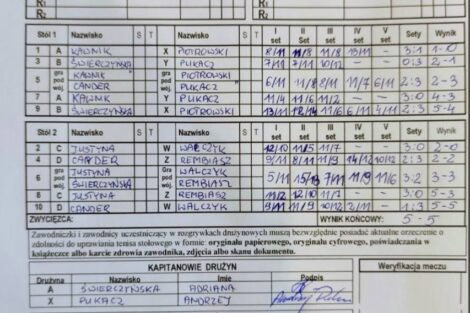 R1 R1
R2 R2
Stół 1 Nazwisko S T Nazwisko S T I set II set III set IV set V set Sety Wynik
1 A KAWNIK X PIOTROWSKI 8/11 11/8 11/8 13/11 – 3:1 1-0
3 B ŚWIERCZYŃSKA Y PUKACZ 7/11 7/11 – – 0:3 2-1
5 gra pod wój. KAWNIK CANDER PIOTROWSKI PUKACZ 6/11 11/8 11/7 6/11 2:3 2-3
7 A KAWNIK Y PUKACZ 11/4 11/6 11/2 – – 3:0 4-3
9 B ŚWIERCZYŃSKA X PIOTROWSKI 13/11 12/14 11/6 4/11 2:3 5-4
Stół 2 Nazwisko S T Nazwisko S T I set II set III set IV set V set Sety Wynik
2 C JUSTYNA W WALCZYK 12/10 11/5 11/7 – – 3:0 2-0
4 D CANDER Z REMBIASZ 9/11 8/11 11/9 14/12 10/12 2:3 2-2
6 gra pod wój. JUSTYNA ŚWIERCZYŃSKA WALCZYK REMBIASZ 5/11 15/13 7/11 11/9 11/6 3:2 3-3
8 C JUSTYNA Z REMBIASZ 11/2 12/10 11/7 – – 3:0 5-3
10 D CANDER W WALCZYK 9/11 11/9 10/12 2/11 – 1:3 5-5
ZWYCIĘZCA: WYNIK KOŃCOWY: 5-5
Zawodniczki i zawodnicy uczestniczący w rozgrywkach drużynowych muszą bezwzględnie posiadać aktualne orzeczenie o
zdolności do uprawiania tenisa stołowego w formie: oryginału papierowego, oryginału cyfrowego, poświadczenia w
książeczce albo karcie zdrowia zawodnika, zdjęcia albo skanu dokumentu.
KAPITANOWIE DRUŻYN Weryfikacja meczu
Drużyna Nazwisko Imię Podpis
A ŚWIERCZYŃSKA ADRIANA
X PUKACZ ANDRZEJ